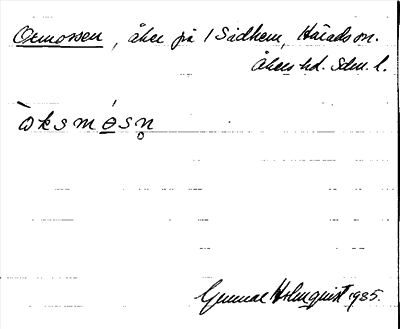 Oxmossen, åker på 1 Sådhem, Härads sn.
Åkers hd. Sdm. l.
ò k s m ó s n̥
Gunnar Holmquist 1935.